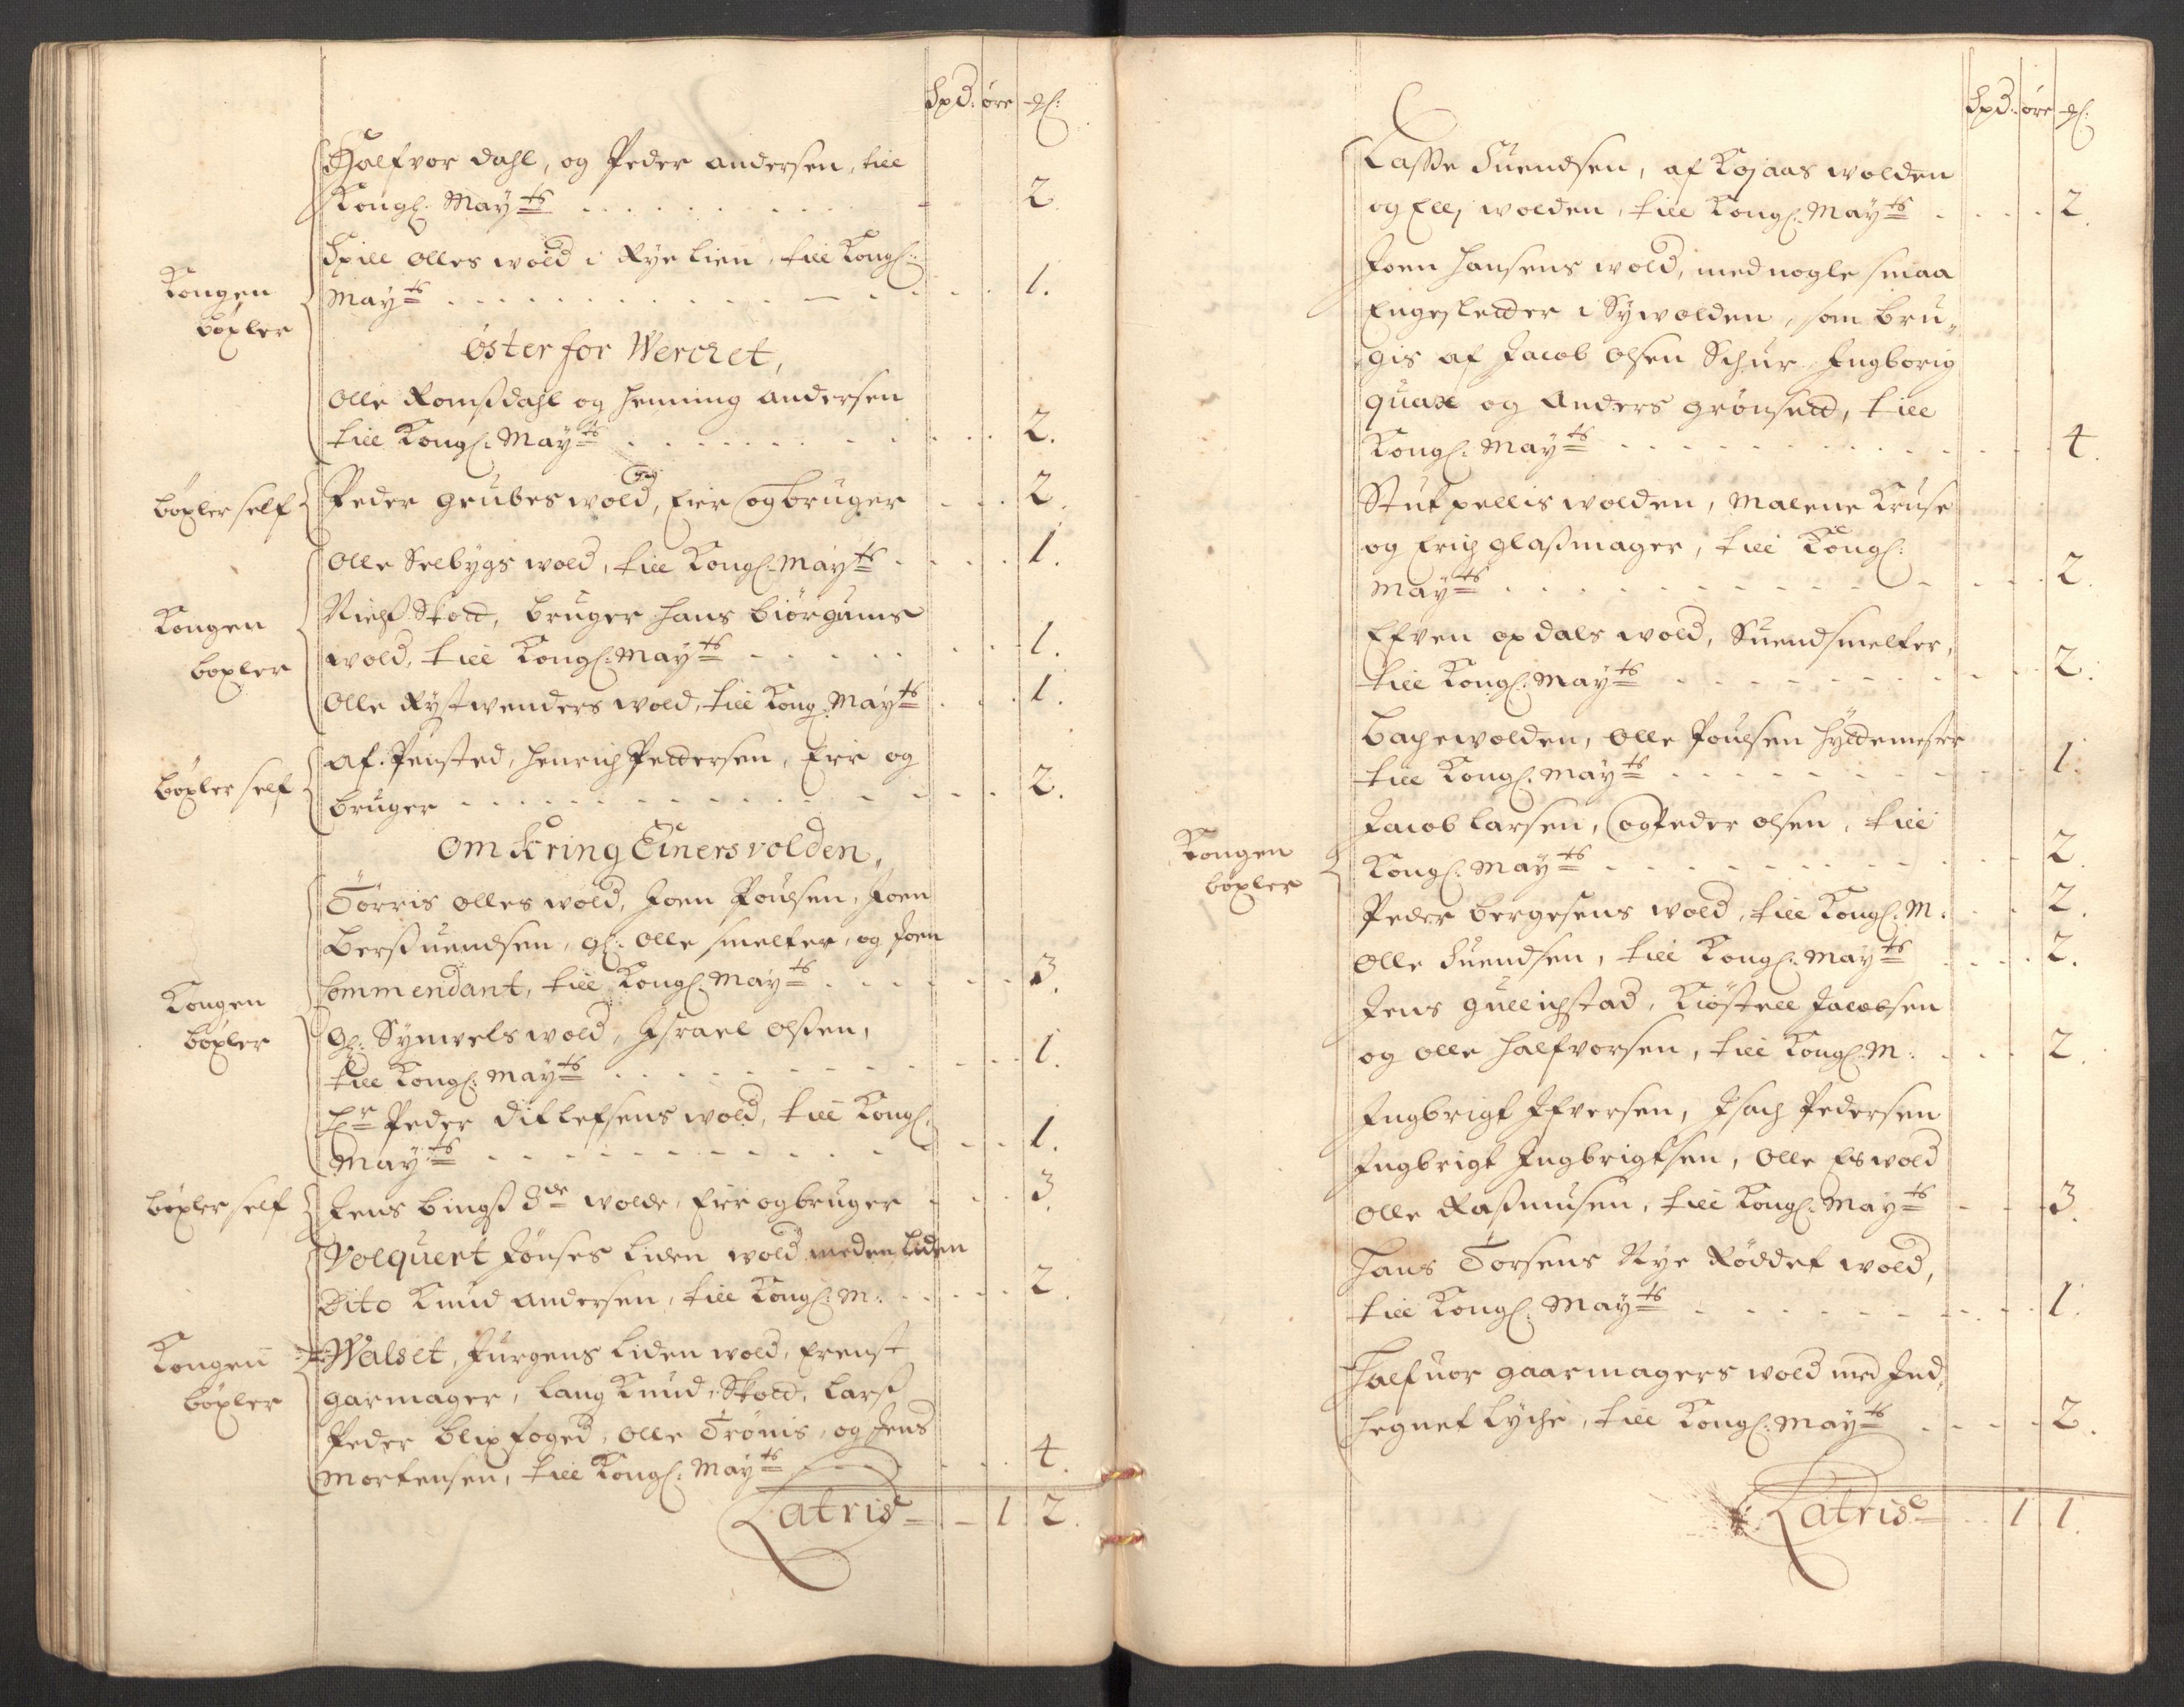 Spd: øre
Halfvor Dahl, og Peder Andersen, till
Kongl: May:ts . . . . . . . . 2
Spill Olles wold i Rye lien, till Kongl:
May:ts . . . . . . . . 1.
Kongen
böxler
öster for Wercket,
Olle Romßdahl og Henning Andersen
till Kongl: May:ts . . . . . . . . 2.
böxler self
Peder Grubes wold, Eier og bruger . . . 2.
Olle Selbygs wold, till Kongl: May:ts . . . . 1.
Kongen
boxler
Nielß Skott, bruger Hans Biörgums
wold, till Kongl: May:ts . . . . . . 1.
Olle Rystwenders wold, till Kong: May:ts . . . 1.
böxler self
af. Pensted, Henrich Peddersen, Eier og
bruger . . . . . . . . 2.
Om Kring Einersvolden,
Törris Olles wold, Joen Poulsen, Joen
Berssuendsen, gl: Olle smelter, og Joen
Commendant, till Kongl: May:ts . . . . . 3.
Kongen
böxler
Gl: Synvels wold, Israel Olßen,
till Kongl: May:ts . . . . . . . . 1.
Hr Peder Ditlefsens wold, till Kongl:
May:ts . . . . . . . . 1.
böxler self
Jens Bingß 3de wolde, Eier og bruger . . . 3.
Volquert Jönses liden wold med en liden
Dito Knud Andersen, till Kongl: M: . . . . 2.
Kongen
böxler
Walset, Jurgens liden wold, Ernst
garmager, Lang Knud, Skott, Larß
Peder Blix foged, Olle Trönis, og Jens
Mortensen, till Kongl: May:ts . . . . 4.
Latris - - 1 2.
Spd: øre
Lasse Suendsen, af Kojaas wolden
og Elli wolden, till Kongl: May:ts . . . . 2.
Joen Hansens wold, med nogle smaa
Engesletter i Sywolden, som bru„
gis af Jacob Olsen Schur, Ingborig
quax og Anders Grönsett, till
Kongl: May:ts . . . . . . . . 4.
Stutpellis wolden, Malene Kruse
og Erich Glaßmager, till Kongl:
May:ts . . . . . . . . 2.
Efven Opdals wold, Suend smelter,
till Kongl: May:ts . . . . . . . . 2.
Bachewolden, Olle Poulsen Hyttemester
till Kongl: May:ts . . . . . . . . 1.
Kongen
böxler
Jacob Larsen, og Peder Olsen, till
Kongl: May:ts . . . . . . . . 2.
Peder Bergesens wold, till Kongl: M: . . 2.
Olle Suendsen, till Kongl: May:ts . . . 2.
Jens Gullichstad, Kiöstell Jacobsen
og Olle Halfvorsen, till Kongl: M: . . . 2.
Ingbrigt Ifversen, Isach Pedersen
Ingbrigt Ingbrigtsen, Olle Eswold
Olle Raßmusen, till Kongl: May:ts - - 3.
Hans Torsens Nye Röddet wold,
till Kongl: May:ts . . . . . . . 1.
Halfuor gaarmagers wold med Ind„
hegnet lyche, till Kongl: May:ts . . . . 2.
Latris - . . 1 1.